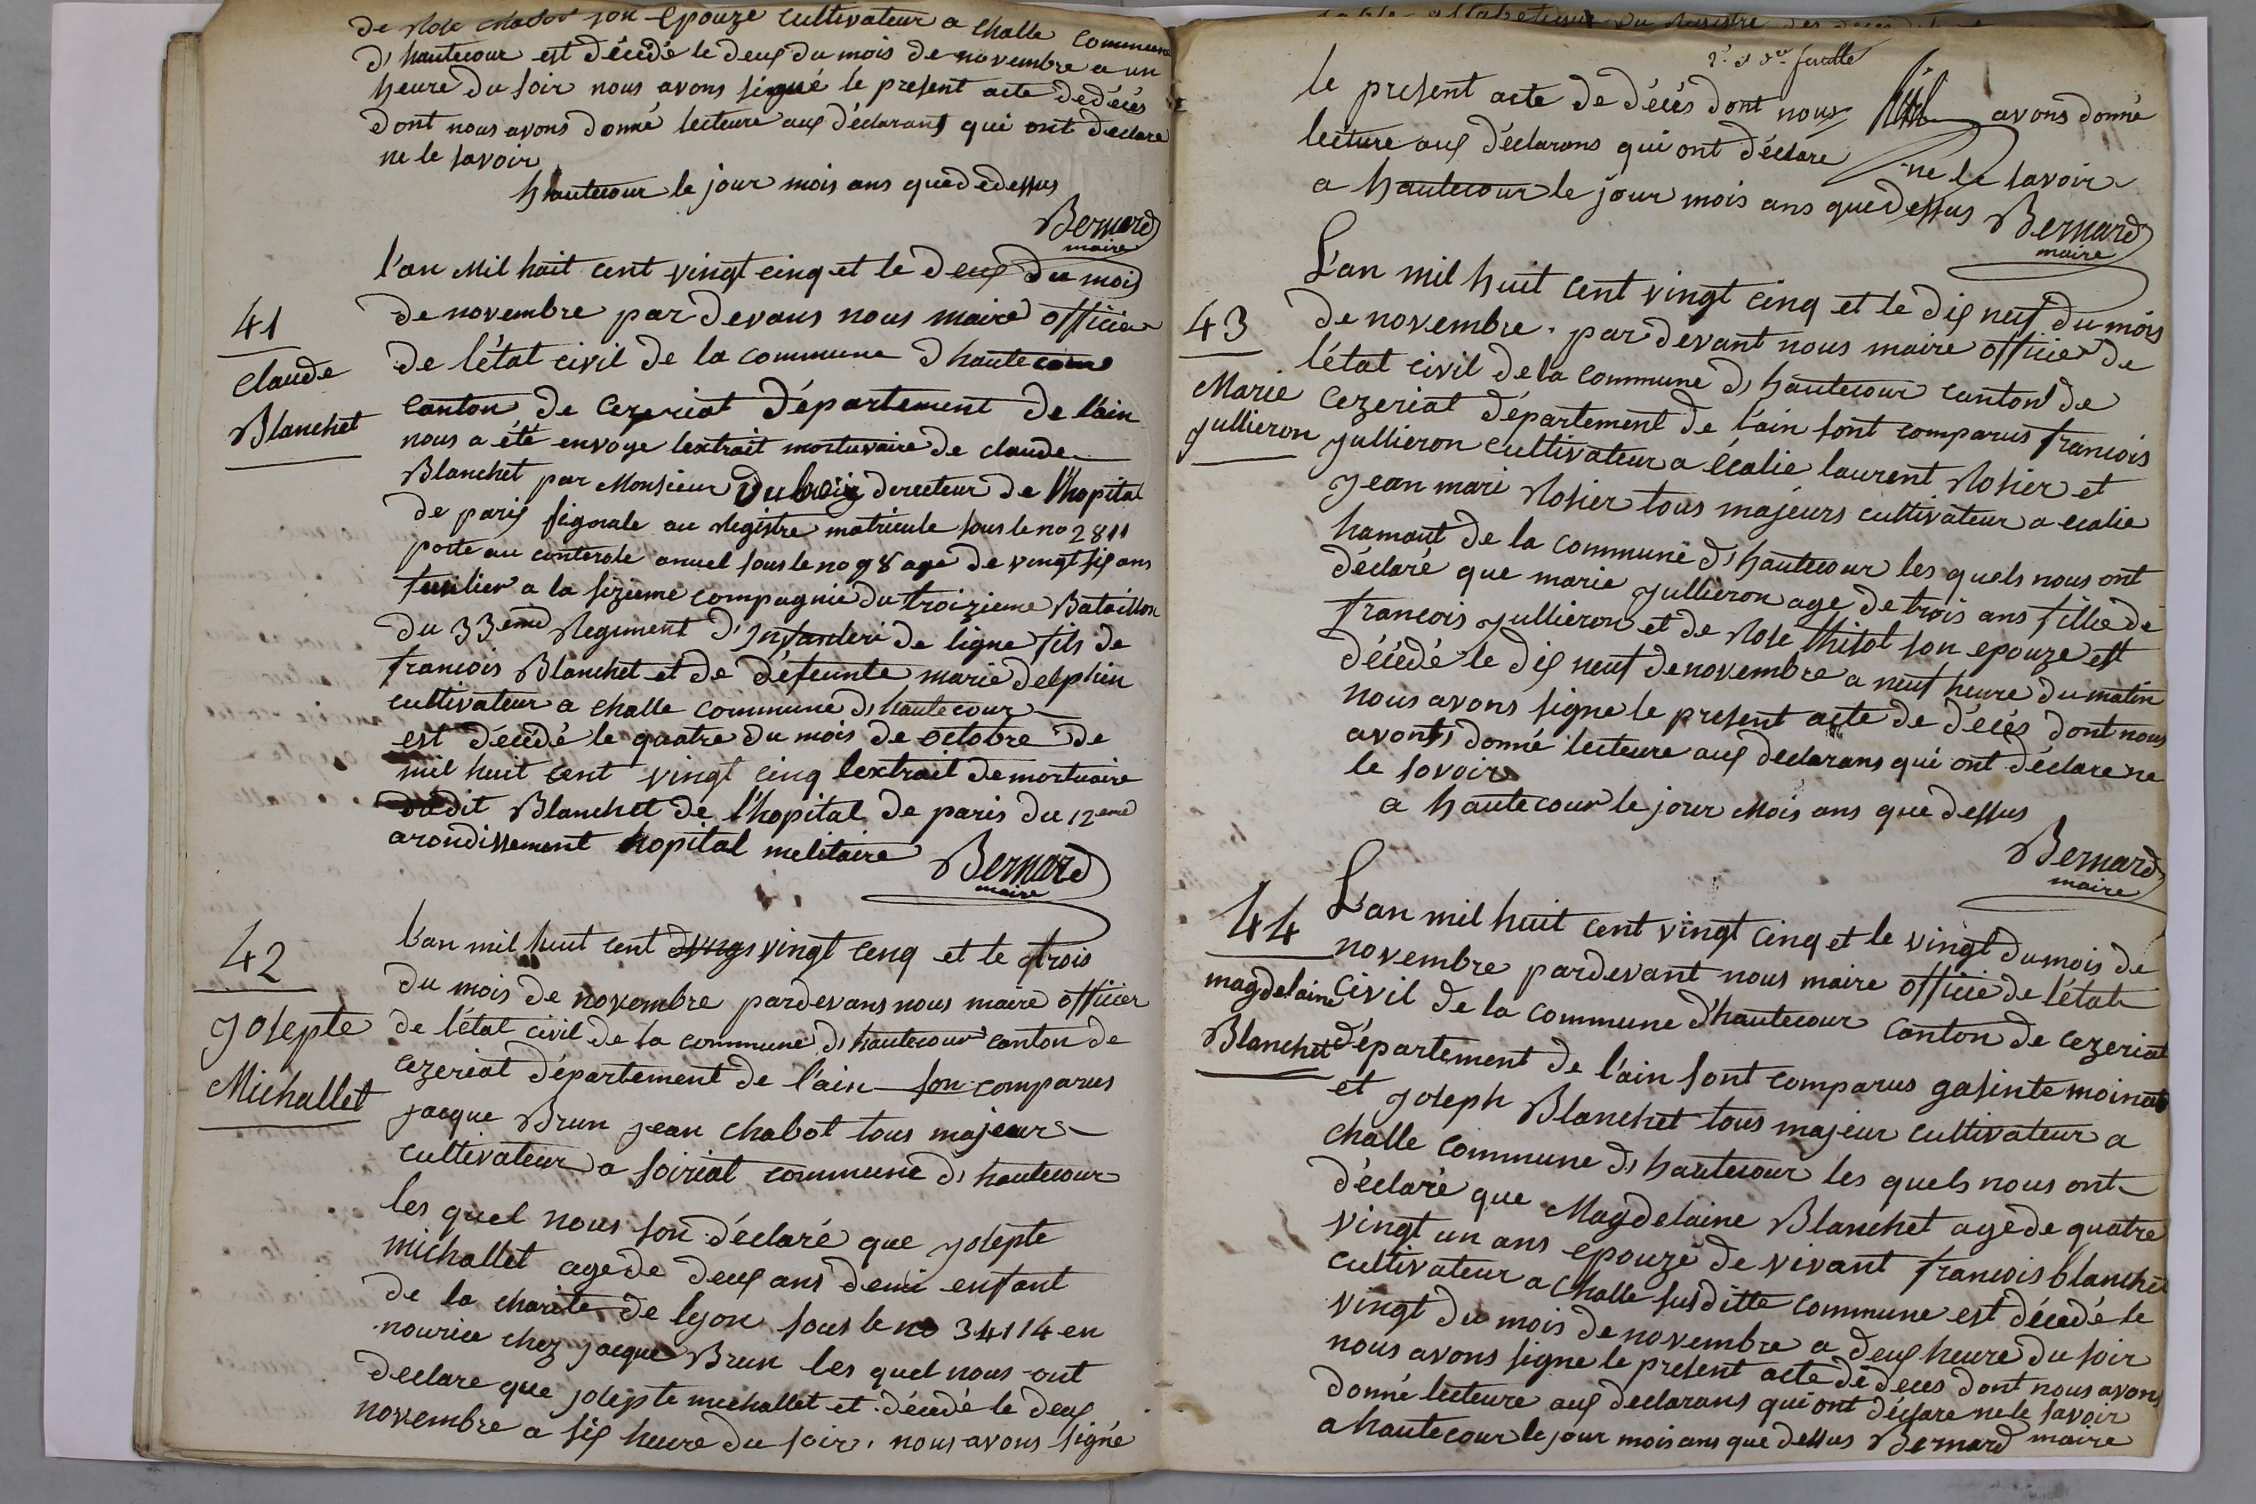 de Rose chabot son epouze cultivateur a challe commune
d'hautecour est décédé le deux du mois de novembre a un
heure du soir nous avons signé le present acte dedécés
dont nous avons donné lecteure aux déclarans qui ont declare
ne le savoir
hautecour le jour mois ans quededessus
Bernard
maire
41
Claude
Blanchet
l'an Mil huit cent vingt cinq et le deux du mois
de novembre par devans nous maire officier
de létat civil de la commune d hautecour
canton de cezeriat département de l'ain
nous a été envoye lextrait mortuvaire de claude
Blanchet par Monsieur directeur de l'hopital
de paris signale au Registre matricule sous le no 2811
porte au conterole anuel sous le no 98 age de vingt six ans
fusilier a la sizieme compagnie du troizieme Bataillon
du 33eme Regiment d'Infanderi de ligne fils de
francois Blanchet et de défeunte marie delphin
cultivateur a challe commune d'hautecour
est décédé le quatre du mois de octobre de
mil huit cent vingt cinq lextrait demortuaire
dudit Blanchet de l'hopital de paris du 12eme
arondissement hopital melitaire
Bernard
maire
42
Josepte
Michallet
L'an mil huit cent vingt cenq et le trois
du mois de novembre pardevans nous maire officier
de l'état civil de la commune d'hautecour canton de
cezeriat département de l'ain son comparus
jacque Brun jean chabot tous majeur
cultivateur a soiriat commune d'hautecour
les quel nous son déclaré que josepte
michallet agede deux ans demi enfant
de la charite de lyon sous le no 34114 en
nourice chez jacque Brun les quel nous ont
declare que josepte michallet et décédé le deux
novembre a six heure du soir. nous avons signé
le present acte de décés dont nous avons donné
lecture aux déclarans qui ont déclare ne le savoir
a hautecour le jour mois ans que dessus Bernard
maire
43
Marie
Jullieron
L'an mil huit cent vingt cinq et le dix neuf du mois
de novembre. par devant nous maire officier de
létat civil de la commune d'hautecour canton de
Cezeriat département de l'ain sont comparus francois
Jullieron cultivateur a écalie laurent Rosier et
jean mari Rosier tous majeurs cultivateur a ecalie
hamaut de la commune d'hautecour les quels nous ont
déclaré que marie jullieron age de trois ans fille de
francois jullieron et de Rose thisot son epouze est
décédé le dix neuf de novembre a neuf heure du matin
nous avons signe le present acte de décés dont nous
avons donné lecteure aux declarans qui ont déclare ne
le savoir
a hautecour le jour Mois ans que dessus
Bernard
maire
44
magdelaine
Blanchet
L'an mil huit cent vingt cinq et le vingt du mois de
novembre pardevant nous maire officie de létat
civil de la commune d'hautecour canton de cezeriat
département de l'ain sont comparus gasinte moinat
et joseph Blanchet tous majeur cultivateur a
challe commune d'hautecour les quels nous ont
déclaré que Magdelaine Blanchet agede quatre
vingt un ans epouze de vivant francois blanchet
cultivateur a challe susditte commune est décédé le
vingt du mois de novembre a deux heure du soir
nous avons signe le present acte de deces dont nous avons
donné lecteure aux declarans qui ont déclare ne le savoir
a hautecour le jour mois ans que dessus Bernard maire